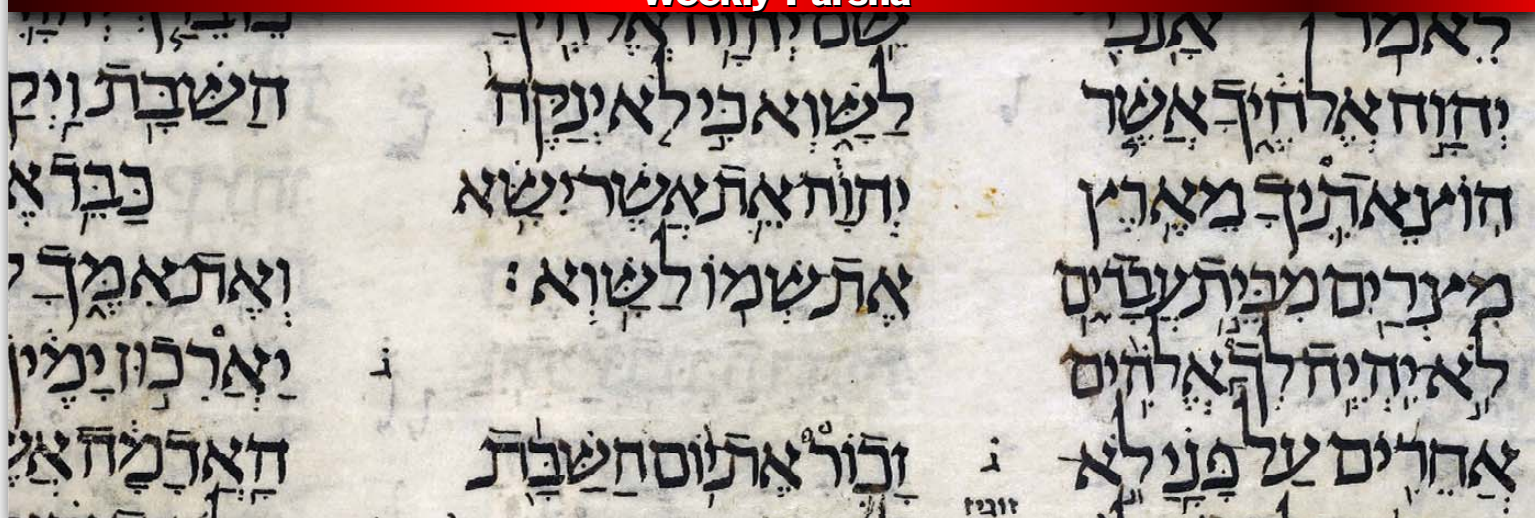 Weekly Parsha
לֵאמֹר אָנֹכִי
יְהוָה אֱלֹהֶיךָ אֲשֶׁר
הוֹצֵאתִיךָ מֵאֶרֶץ
מִצְרַיִם מִבֵּית עֲבָדִים
לֹא יִהְיֶה לְךָ אֱלֹהִים
אֲחֵרִים עַל פָּנָי לֹא
שֵׁם יְהוָה אֱלֹהֶיךָ
לַשָּׁוְא כִּי לֹא יְנַקֶּה
יְהוָה אֵת אֲשֶׁר יִשָּׂא
אֶת שְׁמוֹ לַשָּׁוְא׃
זָכוֹר אֶת יוֹם הַשַּׁבָּת
הַשַּׁבָּת וַיְקַ
כַּבֵּד אֶ
וְאֶת אִמֶּךָ
יַאֲרִכוּן יָמֶי
הָאֲדָמָה אֲשֶׁ